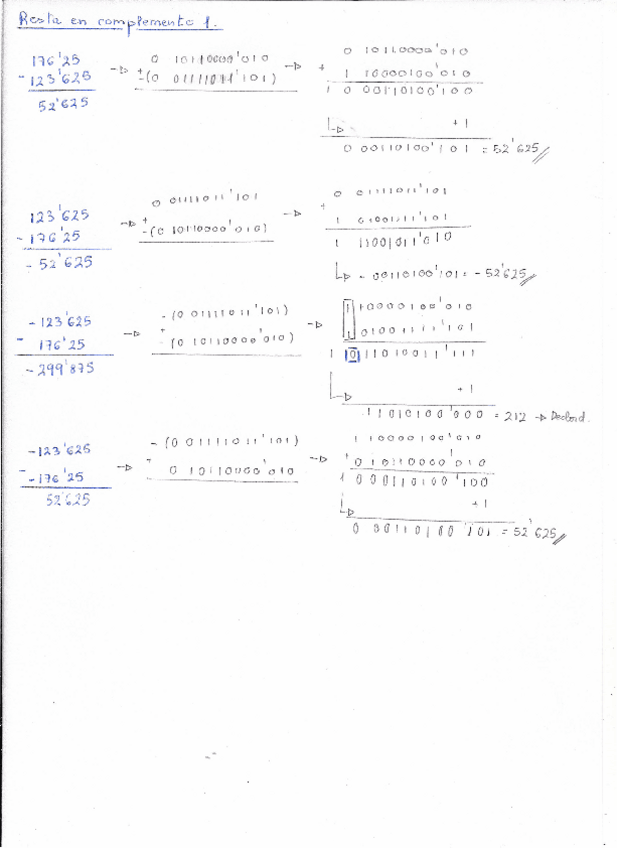 Resta en complemento 1.
176'25 → 0 10110000'010 → 0 10110000'010
- 123'625 + -(0 01111011'101) + 1 10000100'010
52'625 1 0 00110100'100
+1
0 00110100'101 = 52'625//
123'625 → 0 01111011'101 → 0 01111011'101
- 176'25 + -(0 10110000'010) + 1 01001111'101
- 52'625 1 11001011'010
→ - 00110100'101 = - 52'625//
- 123'625 → -(0 01111011'101) → 1 10000100'010
- 176'25 + -(0 10110000'010) 1 01001111'101
- 299'875 1 0 11010011'111
+1
11010100'000 = 212 →
- 123'625 → -(0 01111011'101) → 1 10000100'010
- -176'25 + 0 10110000'010 + 0 10110000'010
52'625 1 0 00110100'100
+1
0 00110100'101 = 52'625//